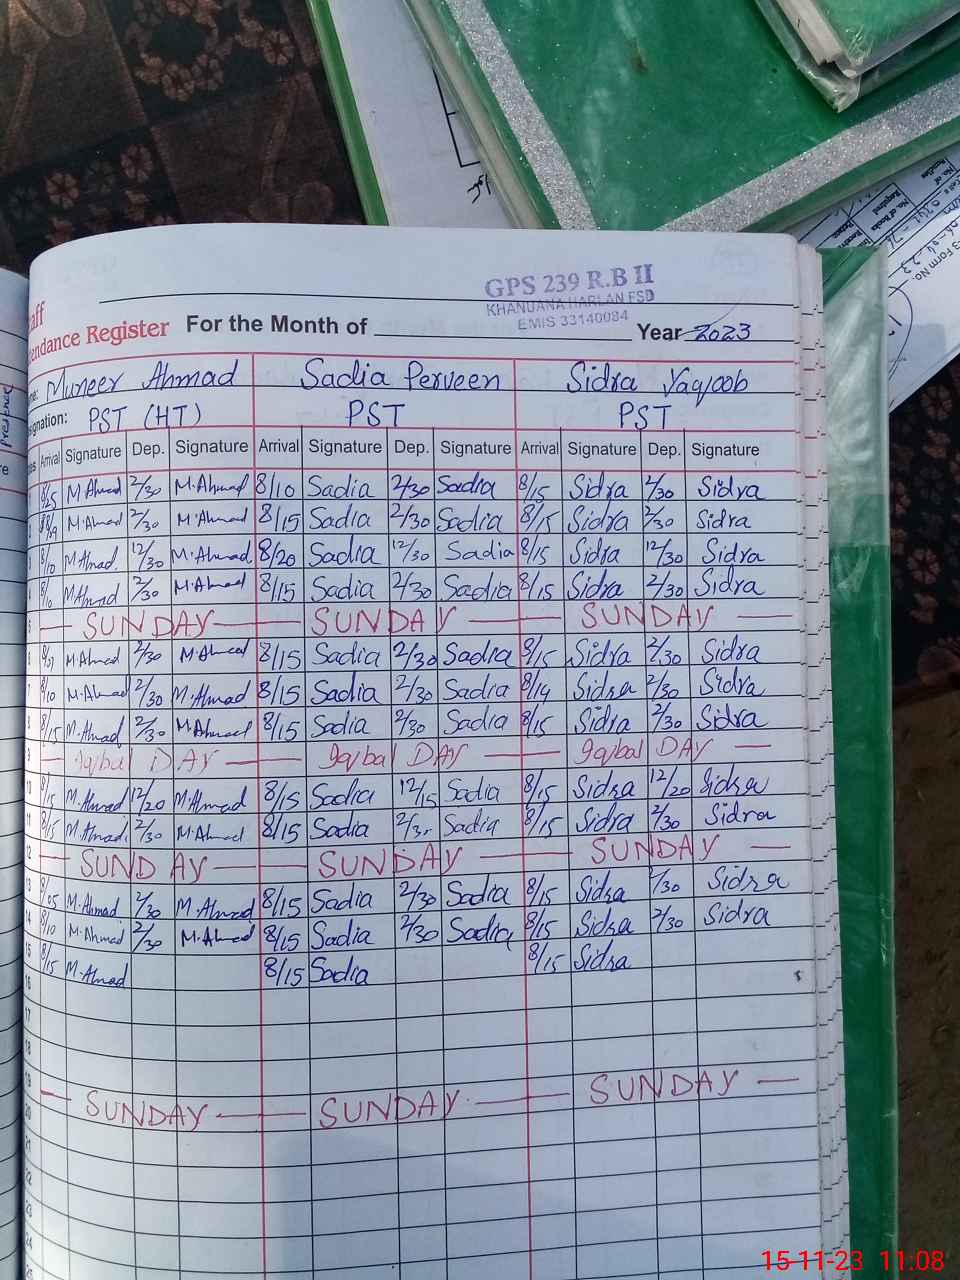 GPS 239 R.B II
KHANUANA HARLAN FSD
EMIS 33140084
aff
endance Register For the Month of Year 2023
me: Muneer Ahmad Sadia Perveen Sidra Yaqoob
signation: PST (HT) PST PST
Arrival Signature Dep. Signature Arrival Signature Dep. Signature Arrival Signature Dep. Signature
8/25 M Ahmad 2/30 M.Ahmad 8/10 Sadia 2/30 Sadia 8/15 Sidra 2/30 Sidra
M.Ahmad 2/30 M.Ahmad 8/15 Sadia 2/30 Sadia 8/15 Sidra 2/30 Sidra
8/10 M.Ahmad. 12/30 M.Ahmad. 8/20 Sadia 12/30 Sadia 8/15 Sidra 12/30 Sidra
8/10 M.Ahmad 2/30 M.Ahmad 8/15 Sadia 2/30 Sadia 8/15 Sidra 2/30 Sidra
SUNDAY SUNDAY SUNDAY
6 M.Ahmad 2/30 M.Ahmad 8/15 Sadia 2/30 Sadia 8/15 Sidra 2/30 Sidra
7 8/10 M.Ahmad 2/30 M.Ahmad 8/15 Sadia 2/30 Sadia 8/14 Sidra 2/30 Sidra
8 8/15 M.Ahmad 2/30 M.Ahmad 8/15 Sadia 2/30 Sadia 8/15 Sidra 2/30 Sidra
9 Iqbal DAY Iqbal DAY Iqbal DAY
10 8/15 M.Ahmad 12/20 M.Ahmad 8/15 Sadia 12/15 Sadia 8/15 Sidra 12/20 Sidra
8/15 M.Ahmad 2/30 M.Ahmad 8/15 Sadia Sadia 8/15 Sidra 2/30 Sidra
12 SUNDAY SUNDAY SUNDAY
13 M.Ahmad. 2/30 M.Ahmad 8/15 Sadia 2/30 Sadia 8/15 Sidra 2/30 Sidra
14 8/10 M.Ahmad 2/30 M.Ahmad 8/15 Sadia 2/30 Sadia 8/15 Sidra 2/30 Sidra
15 8/15 M.Ahmad 8/15 Sadia 8/15 Sidra
16
17
18
19 SUNDAY SUNDAY SUNDAY
20
21
22
23
24
25
15-11-23 11:08